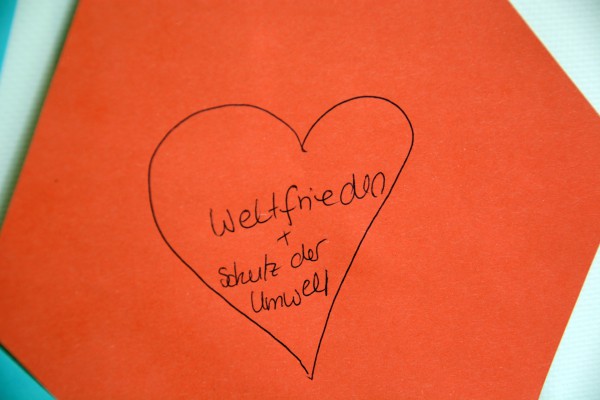 Weltfrieden
+
Schutz der
Umwelt